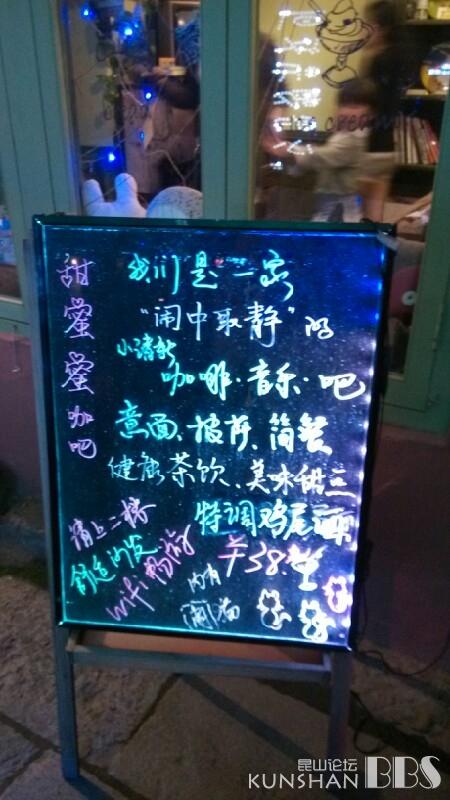 甜蜜蜜咖吧
我们是一家
"闹中取静"的
小清新
咖啡·音乐·吧
意面、披萨、简餐
健康茶饮、美味甜兰
特调鸡尾酒
请上二楼
舒适沙发
wifi畅游
¥38.
内有
闹猫
昆山论坛
KUNSHAN BBS